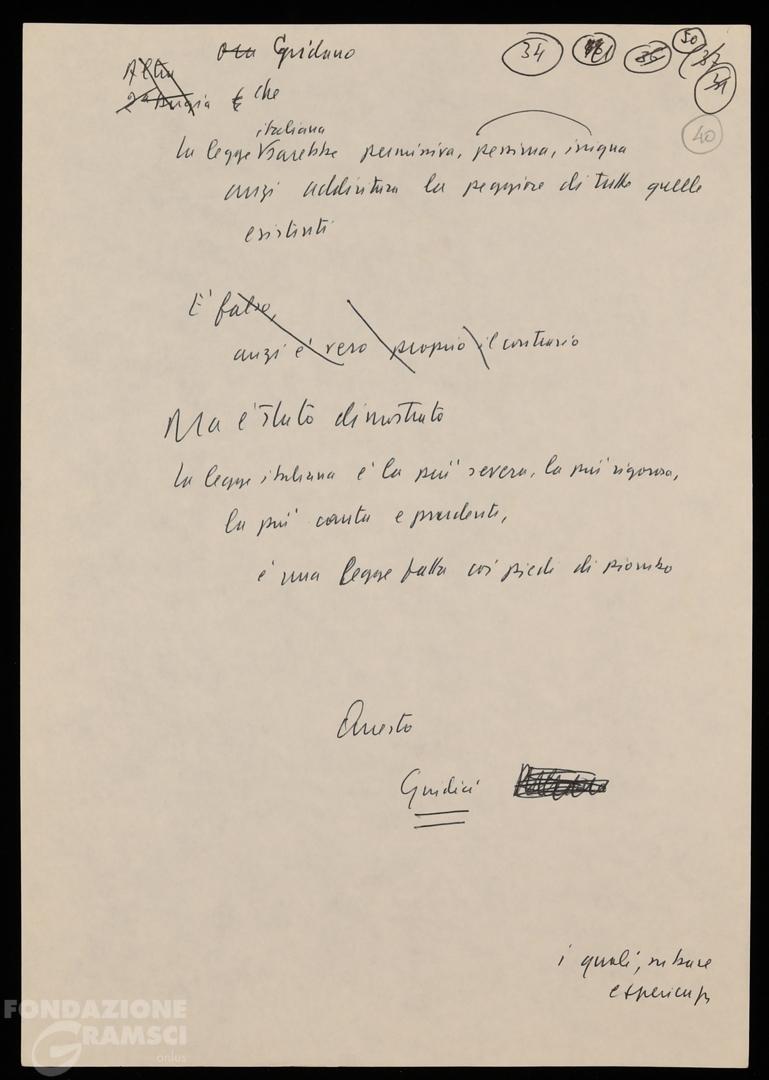 ora Gridano
34 41 35 50 37 39
Altra
2ª bugia È che
40
italiana
La legge sarebbe permissiva, pessima, iniqua
anzi addirittura la peggiore di tutte quelle
esistenti
E' falso,
anzi è vero proprio il contrario
Ma è stato dimostrato
La legge italiana è la più severa, la più rigorosa,
la più cauta e prudente,
è una legge fatta coi piedi di piombo
Questo
Giudici
i quali, in base
FONDAZIONE
GRAMSCI
onlus